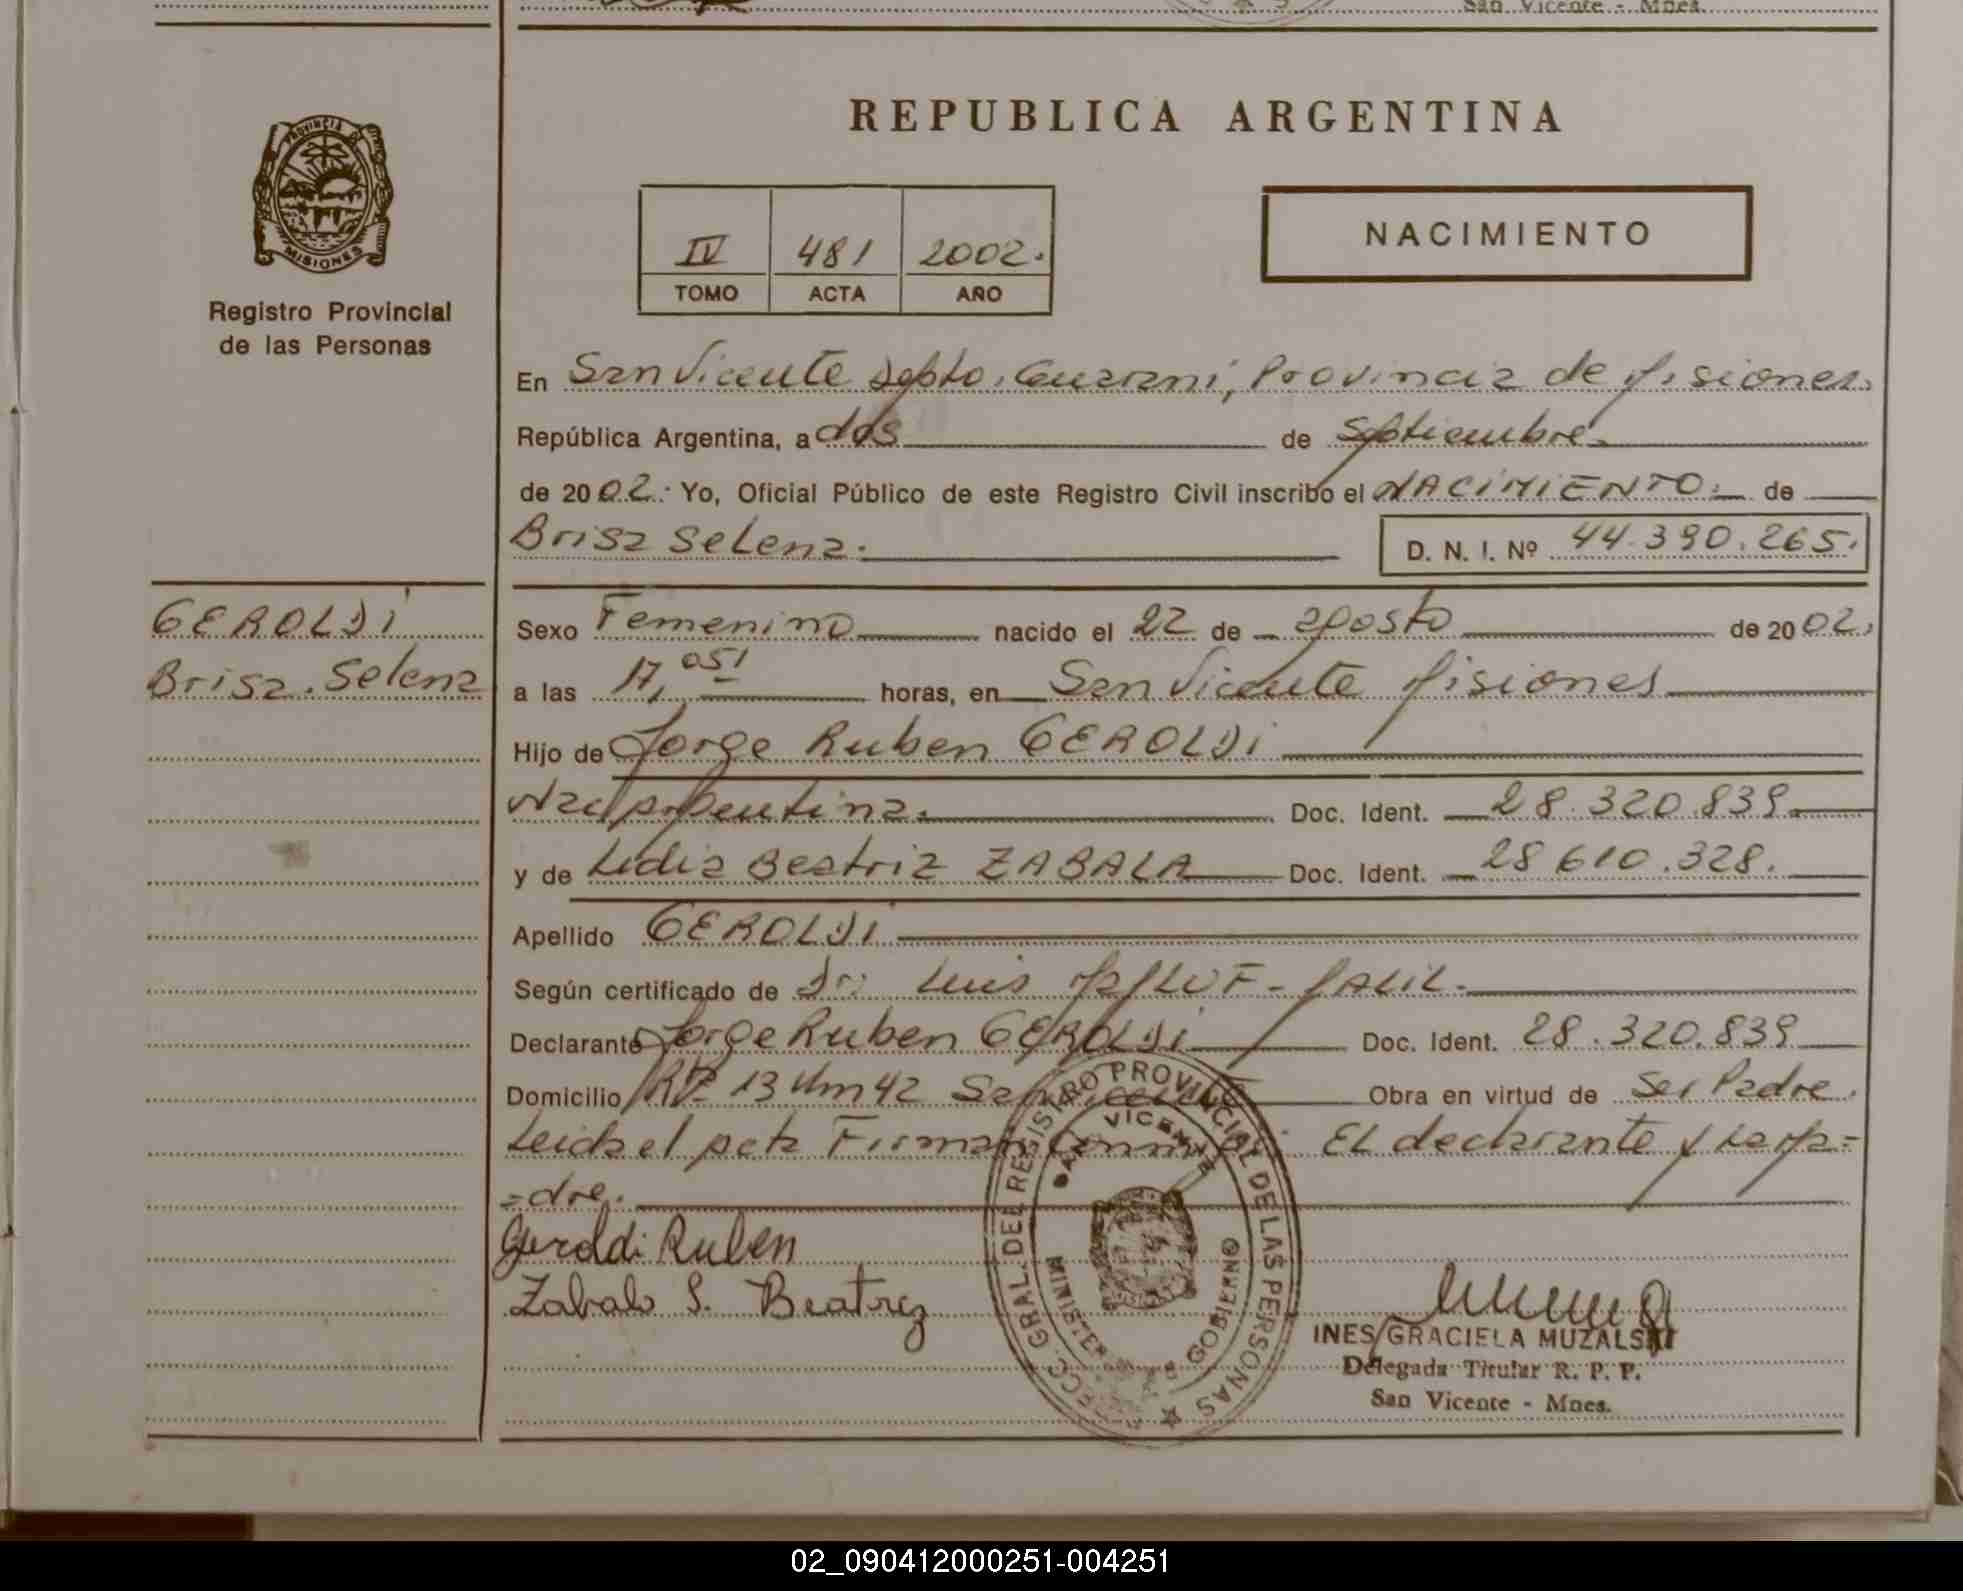 San Vicente - Mnes.
PROVINCIA DE
MISIONES
Registro Provincial
de las Personas
REPUBLICA ARGENTINA
IV 481 2002.
TOMO ACTA AÑO
NACIMIENTO
En San Vicente Depto. Guarani, Provincia de Misiones.
República Argentina, a dos de Septiembre.
de 2002. Yo, Oficial Público de este Registro Civil inscribo el NACIMIENTO. de
Brisa Selena.
D. N. I. Nº 44.390.265.
GEROLDI
Brisa. Selena
Sexo Femenino nacido el 22 de agosto de 2002.
a las 17,05' horas, en San Vicente Misiones
Hijo de Jorge Ruben GEROLDI
Nac. Argentina. Doc. Ident. 28.320.839.
y de Lidia Beatriz ZABALA Doc. Ident. 28610.328.
Apellido GEROLDI
Según certificado de Dr. Luis MALIL.
Declarante Jorge Ruben GEROLDI Doc. Ident. 28.320.839
Domicilio RP 13 Km 42 San Vicente Obra en virtud de Ser Padre.
Leida el acta Firman conmigo: EL declarante y La Ma=
=dre.
Geroldi Ruben
Zabala L. Beatriz
DIRECC. GRAL. DEL REGISTRO PROVINCIAL DE LAS PERSONAS
SAN VICENTE
MINISTERIO DE GOBIERNO
INES GRACIELA MUZALSKI
Delegada Titular R. P. P.
San Vicente - Mnes.
02_090412000251-004251